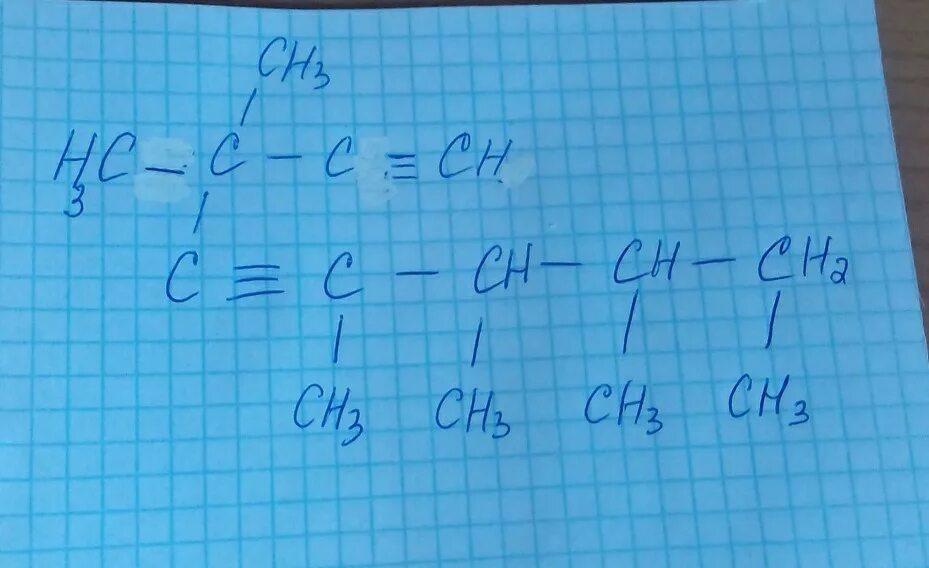 CH3
H3C — C — C ≡ CH
C ≡ C — CH — CH — CH2
CH3 CH3 CH3 CH3